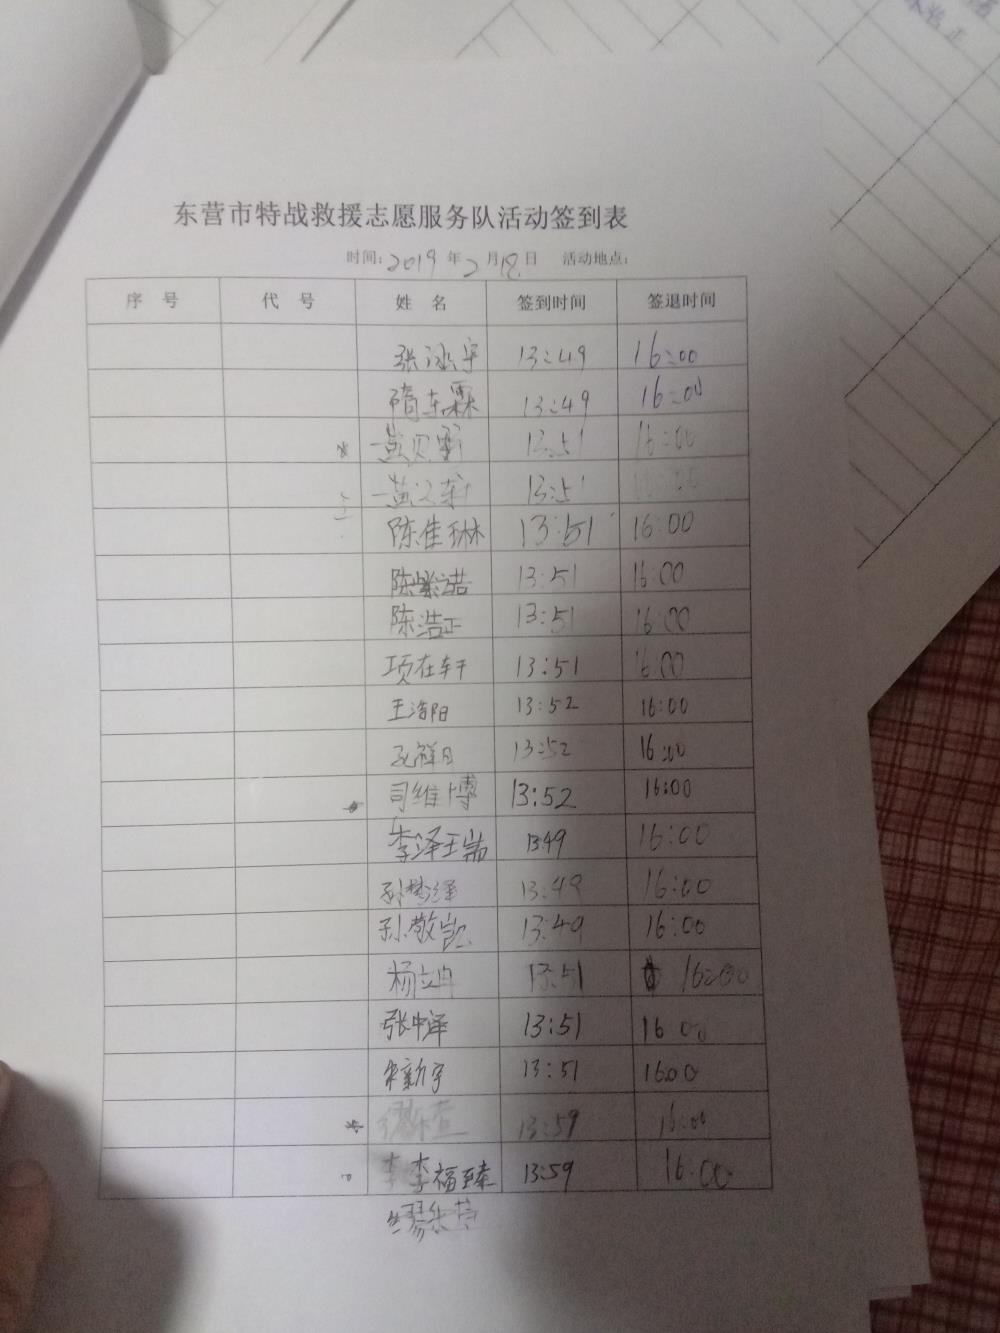 东营市特战救援志愿服务队活动签到表
时间:2019年2月18日 活动地点:
序 号 代 号 姓 名 签到时间 签退时间
张泳宇 13:49 16:00
隋东霖 13:49 16:00
黄贝 13:51 16:00
黄 13:51
陈佳琳 13:51 16:00
陈紫诺 13:51 16:00
陈浩正 13:51 16:00
项在轩 13:51 16:00
王浩阳 13:52 16:00
孔祥日 13:52 16:00
司维博 13:52 16:00
李泽王耑 1349 16:00
孙梦泽 13:49 16:00
孙敬凯 13:49 16:00
杨立冉 13:51 16:00
张中泽 13:51 16 00
宋新宇 13:51 1600
13:59 16:00
李 李福臻 13:59 16:00